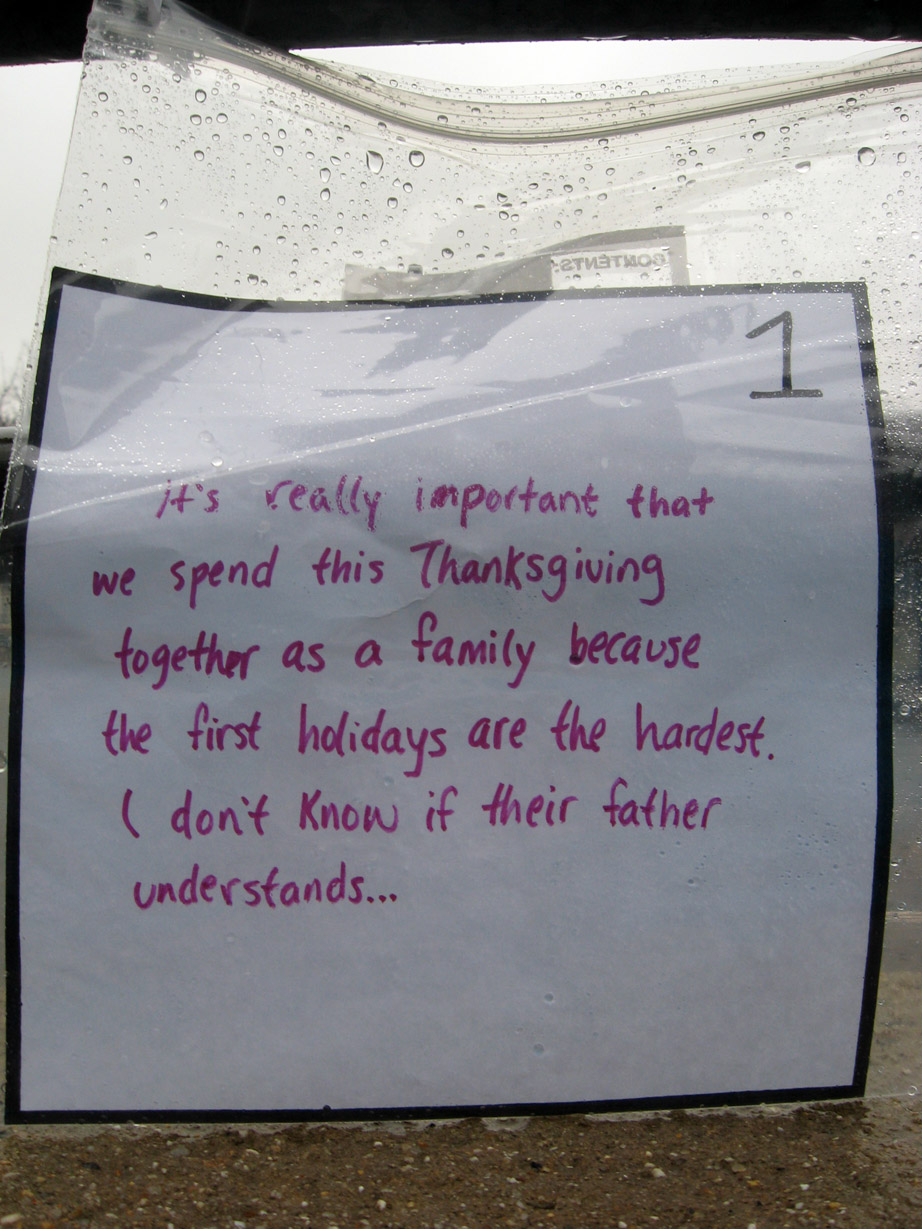 CONTENTS:
1
it's really important that
we spend this Thanksgiving
together as a family because
the first holidays are the hardest.
I don't know if their father
understands...